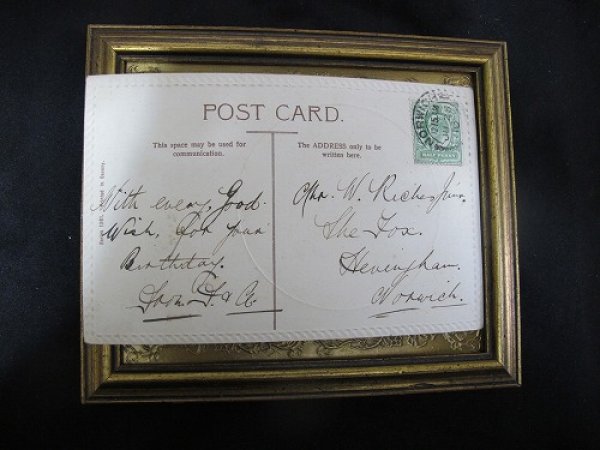 POST CARD.
This space may be used for
communication.
The ADDRESS only to be
written here.
With every Good
Wish, For your
Birthday.
From F & A
Mr. W. Riches Junr.
The Fox.
Hevingham.
Norwich.
NORWICH
HALF PENNY